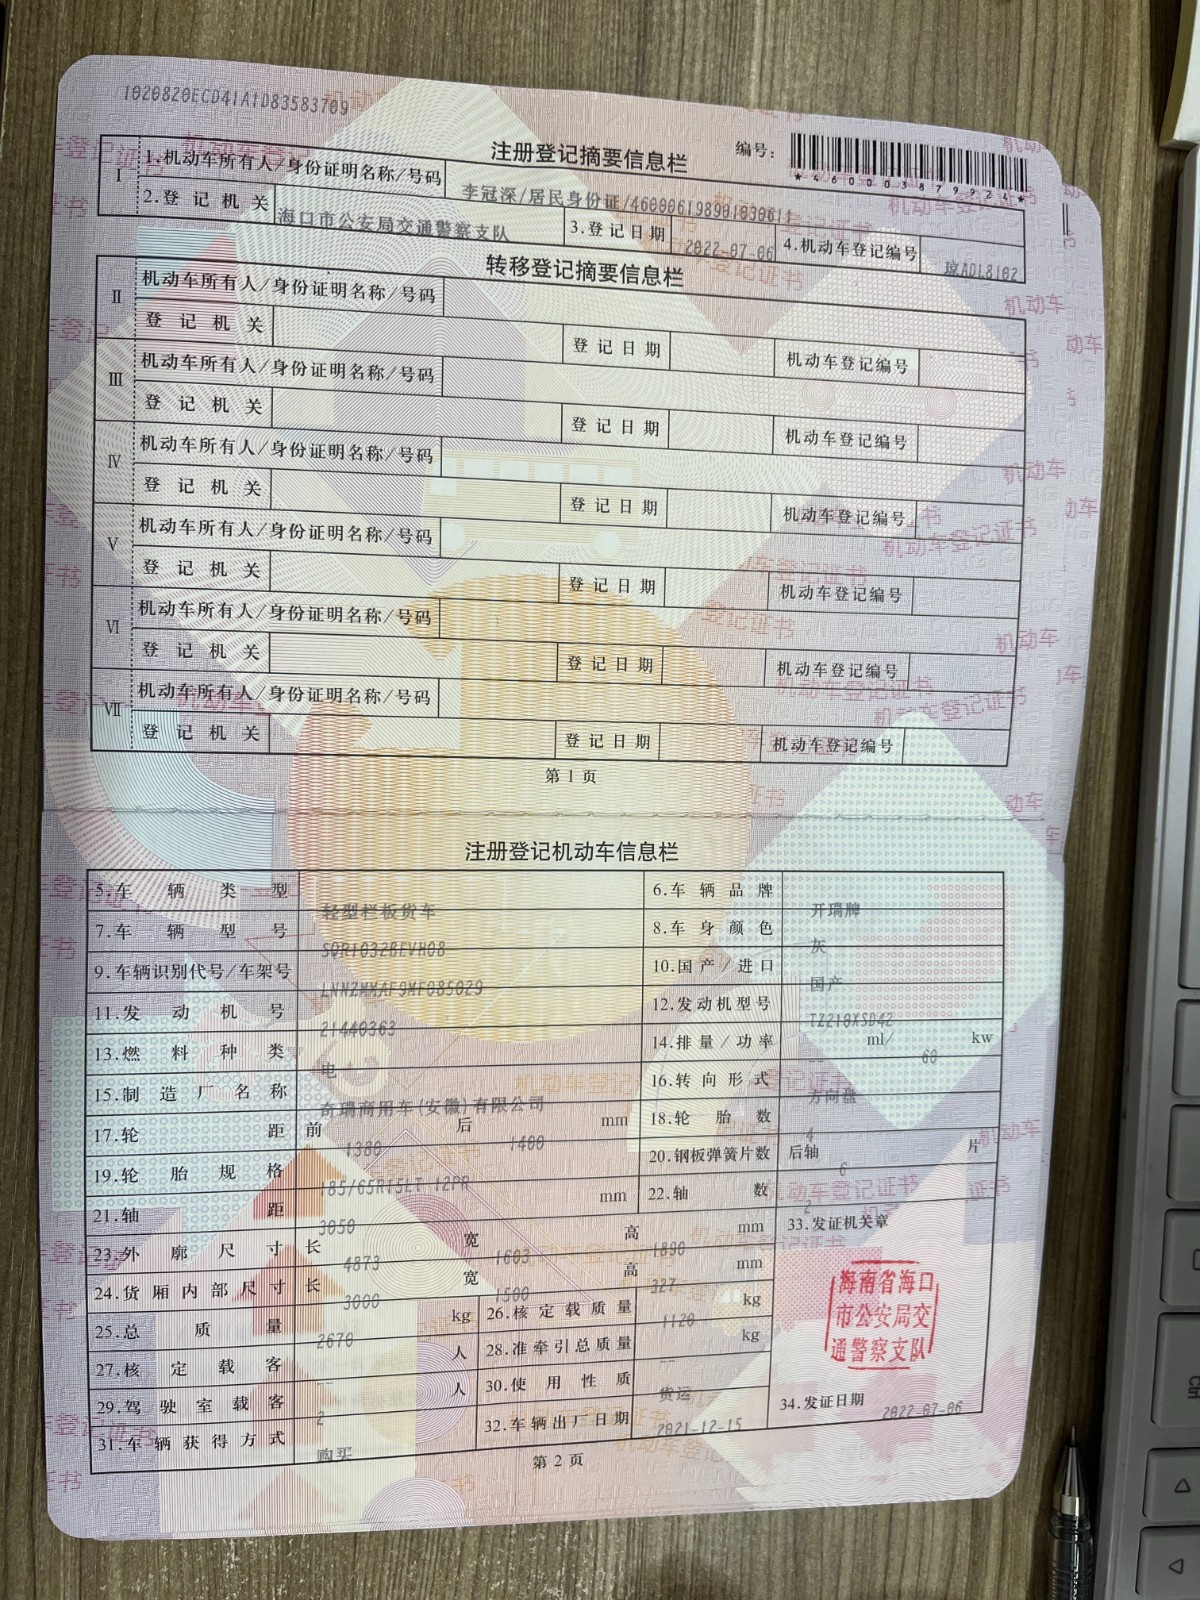 1020820ECD41A1D83583709
注册登记摘要信息栏 编号：
*460003879924*
I 1.机动车所有人/身份证明名称/号码 李冠深/居民身份证/460006198901030611
2.登记机关 海口市公安局交通警察支队 3.登记日期 2022-07-06 4.机动车登记编号 琼ADL8102
转移登记摘要信息栏
II 机动车所有人/身份证明名称/号码
登记机关 登记日期 机动车登记编号
III 机动车所有人/身份证明名称/号码
登记机关 登记日期 机动车登记编号
IV 机动车所有人/身份证明名称/号码
登记机关 登记日期 机动车登记编号
V 机动车所有人/身份证明名称/号码
登记机关 登记日期 机动车登记编号
VI 机动车所有人/身份证明名称/号码
登记机关 登记日期 机动车登记编号
VII 机动车所有人/身份证明名称/号码
登记机关 登记日期 机动车登记编号
第1页
注册登记机动车信息栏
5.车辆类型 轻型栏板货车 6.车辆品牌 开瑞牌
7.车辆型号 SQR1032BEVH08 8.车身颜色 灰
9.车辆识别代号/车架号 LNNZMMAF9MF085029 10.国产/进口 国产
11.发动机号 21440363 12.发动机型号 TZ210XSD42
13.燃料种类 电 14.排量/功率 -- ml/ 60 kw
15.制造厂名称 奇瑞商用车(安徽)有限公司 16.转向形式 方向盘
17.轮距 前 1380 后 1400 mm 18.轮胎数 4
19.轮胎规格 185/65R15LT 12PR 20.钢板弹簧片数 后轴 6 片
21.轴距 3050 mm 22.轴数 2
23.外廓尺寸 长 4873 宽 1603 高 1890 mm 33.发证机关章
24.货厢内部尺寸 长 3000 宽 1500 高 327 mm
25.总质量 2670 kg 26.核定载质量 1120 kg
27.核定载客 -- 人 28.准牵引总质量 -- kg
29.驾驶室载客 2 人 30.使用性质 货运
31.车辆获得方式 购买 32.车辆出厂日期 2021-12-15
海南省海口
市公安局交
通警察支队
34.发证日期 2022-07-06
第2页